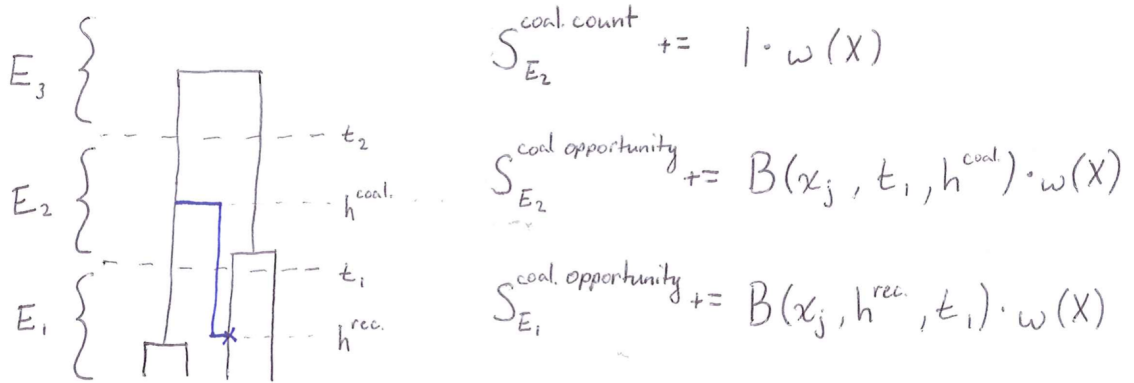 E₃
t₂
E₂
h^{coal.}
t₁
E₁
h^{rec.}
S_{E₂}^{coal. count} += 1 · w(X)
S_{E₂}^{coal opportunity} += B(x_j, t₁, h^{coal.}) · w(X)
S_{E₁}^{coal. opportunity} += B(x_j, h^{rec.}, t₁) · w(X)